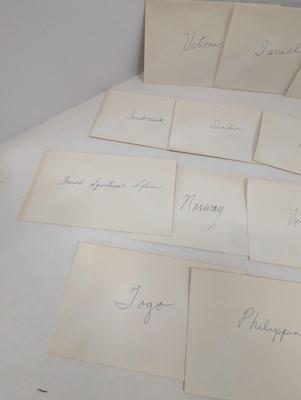 Vatican
Israel
Indonesia
India
French Equatorial Africa
Norway
Togo
Philippin